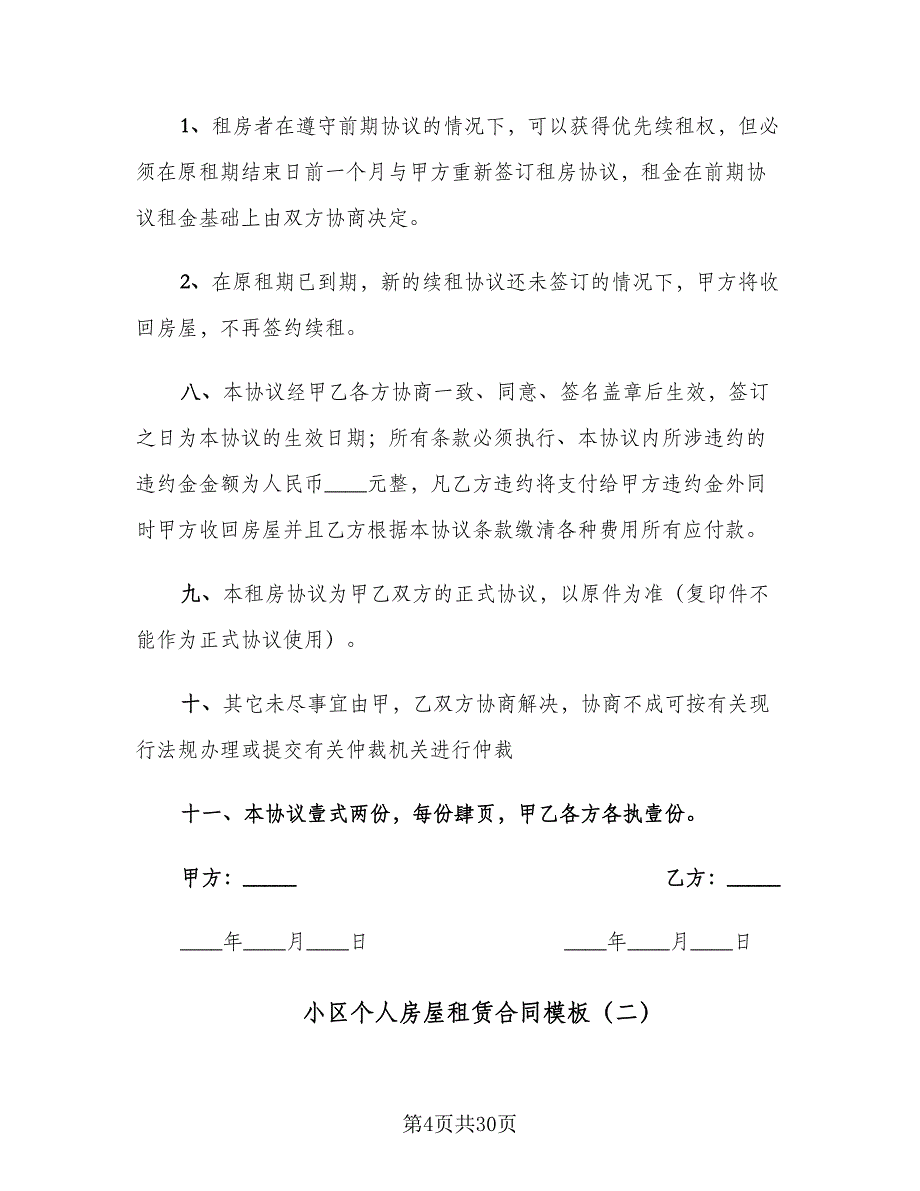 1、租房者在遵守前期协议的情况下，可以获得优先续租权，但必
须在原租期结束日前一个月与甲方重新签订租房协议，租金在前期协
议租金基础上由双方协商决定。
2、在原租期已到期，新的续租协议还未签订的情况下，甲方将收
回房屋，不再签约续租。
八、本协议经甲乙各方协商一致、同意、签名盖章后生效，签订
之日为本协议的生效日期；所有条款必须执行、本协议内所涉违约的
违约金金额为人民币____元整，凡乙方违约将支付给甲方违约金外同
时甲方收回房屋并且乙方根据本协议条款缴清各种费用所有应付款。
九、本租房协议为甲乙双方的正式协议，以原件为准（复印件不
能作为正式协议使用）。
十、其它未尽事宜由甲，乙双方协商解决，协商不成可按有关现
行法规办理或提交有关仲裁机关进行仲裁
十一、本协议壹式两份，每份肆页，甲乙各方各执壹份。
甲方：_____ 乙方：_____
____年____月____日 ____年____月____日
小区个人房屋租赁合同模板（二）
第4页共30页